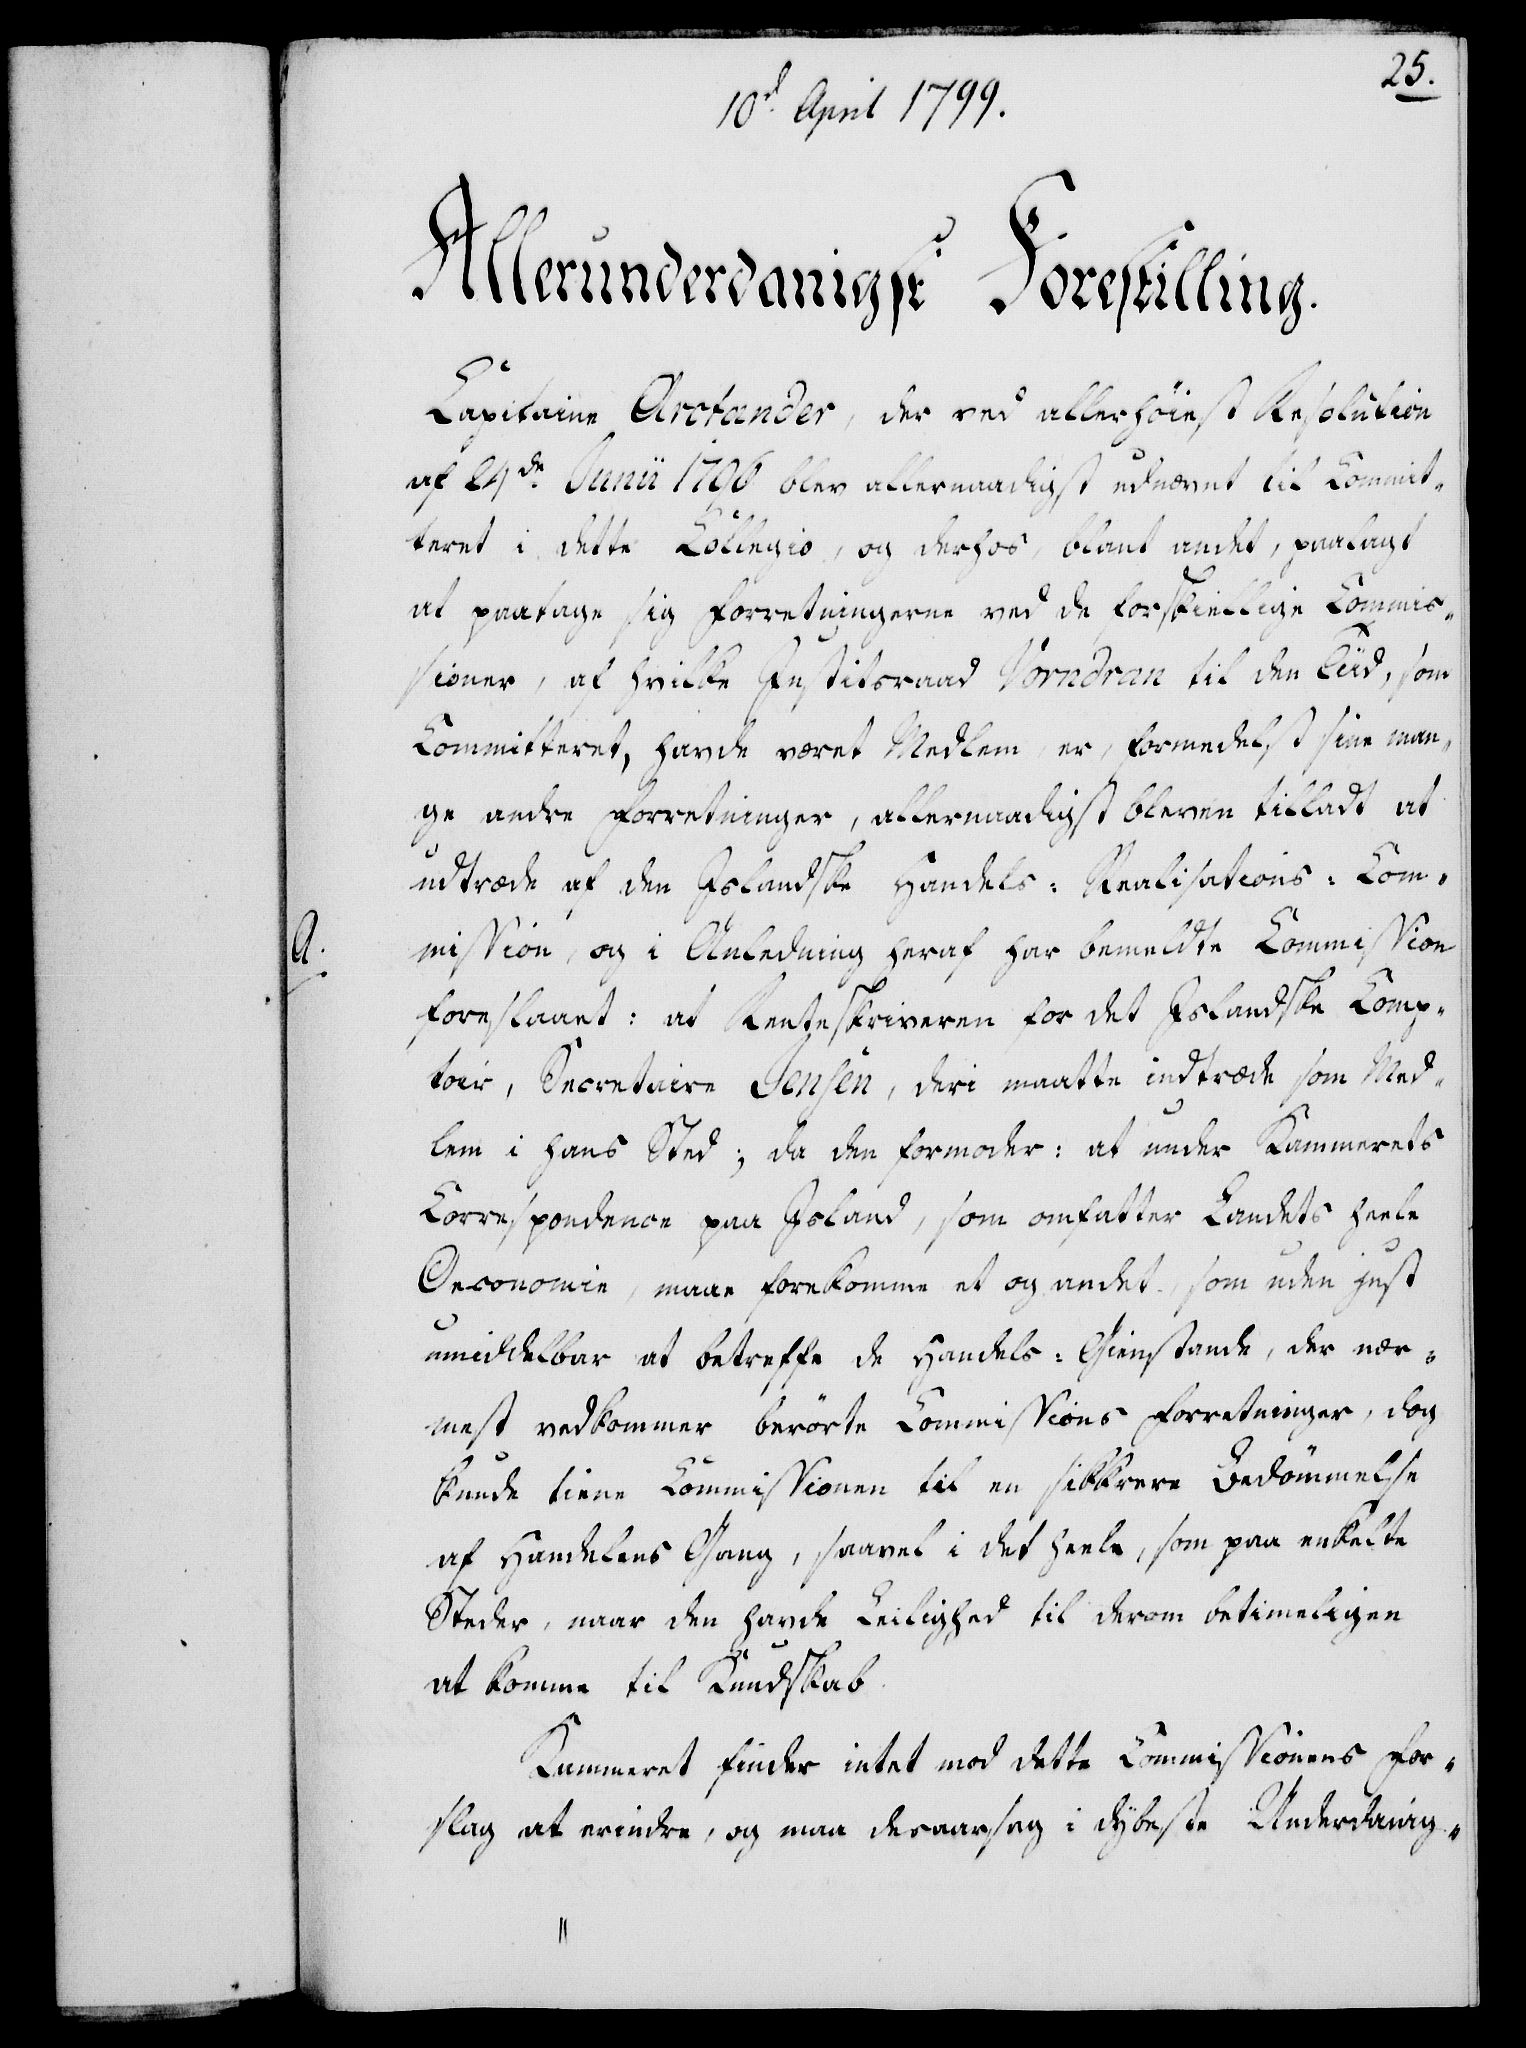 25.
10d April 1799.
Allerunderdanigst Forestilling.
Capitaine Arctander, der ved allerhöiest Resolution
af 24de Junii 1796 blev allernaadigst udnævnt til Commit-
teret i dette Collegio, og derhos, blant andet, paalagt
at paatage sig Forretningerne ved de forskiellige Commis-
sioner, af hvilke Justitsraad Vorndran til den Tiid, som
Committeret, havde været Medlem, er, formedelst sine man-
ge andre Forretninger, allernaadigst bleven tilladt at
udtræde af den Islandske Handels-Realisations-Com-
A.
mission, og i Anledning heraf har bemeldte Commission
foreslaaet: at Renteskriveren for det Islandske Comp-
toir, Secretaire Jensen, deri maatte indtræde som Med-
lem i hans Sted; da den formoder: at under Kammerets
Correspondence paa Island, som omfatter Landets heele
Oeconomie, maae forekomme et og andet, som uden just
umiddelbar at betreffe de Handels-Gienstande, der nær-
mest vedkommer berörte Commissions Forretninger, dog
kunde tiene Commissionen til en sikkrere Bedömmelse
af Handelens Gang, saavel i det heele, som paa enkelte
Steder, naar den havde Leilighed til derom betimeligen
at komme til Kundskab.
Kammeret finder intet mod dette Commissionens For-
slag at erindre, og maa desaarsag i dybeste Underdanig-